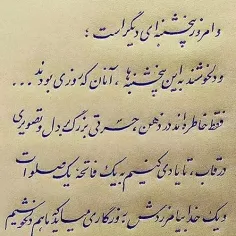 و امروز پنجشنبه‌ای دیگر است؛
و دلخوشند به این پنجشنبه‌ها، آنان که روزی بودند ...
فقط خاطره ماند در ذهن، حسرتی بزرگ بر دل و تصویری
در قاب، تا یادی کنیم به یک فاتحه یک صلوات
و یک خدا بیامرزدش، روزگاری میآید ما هم دلخوشیم